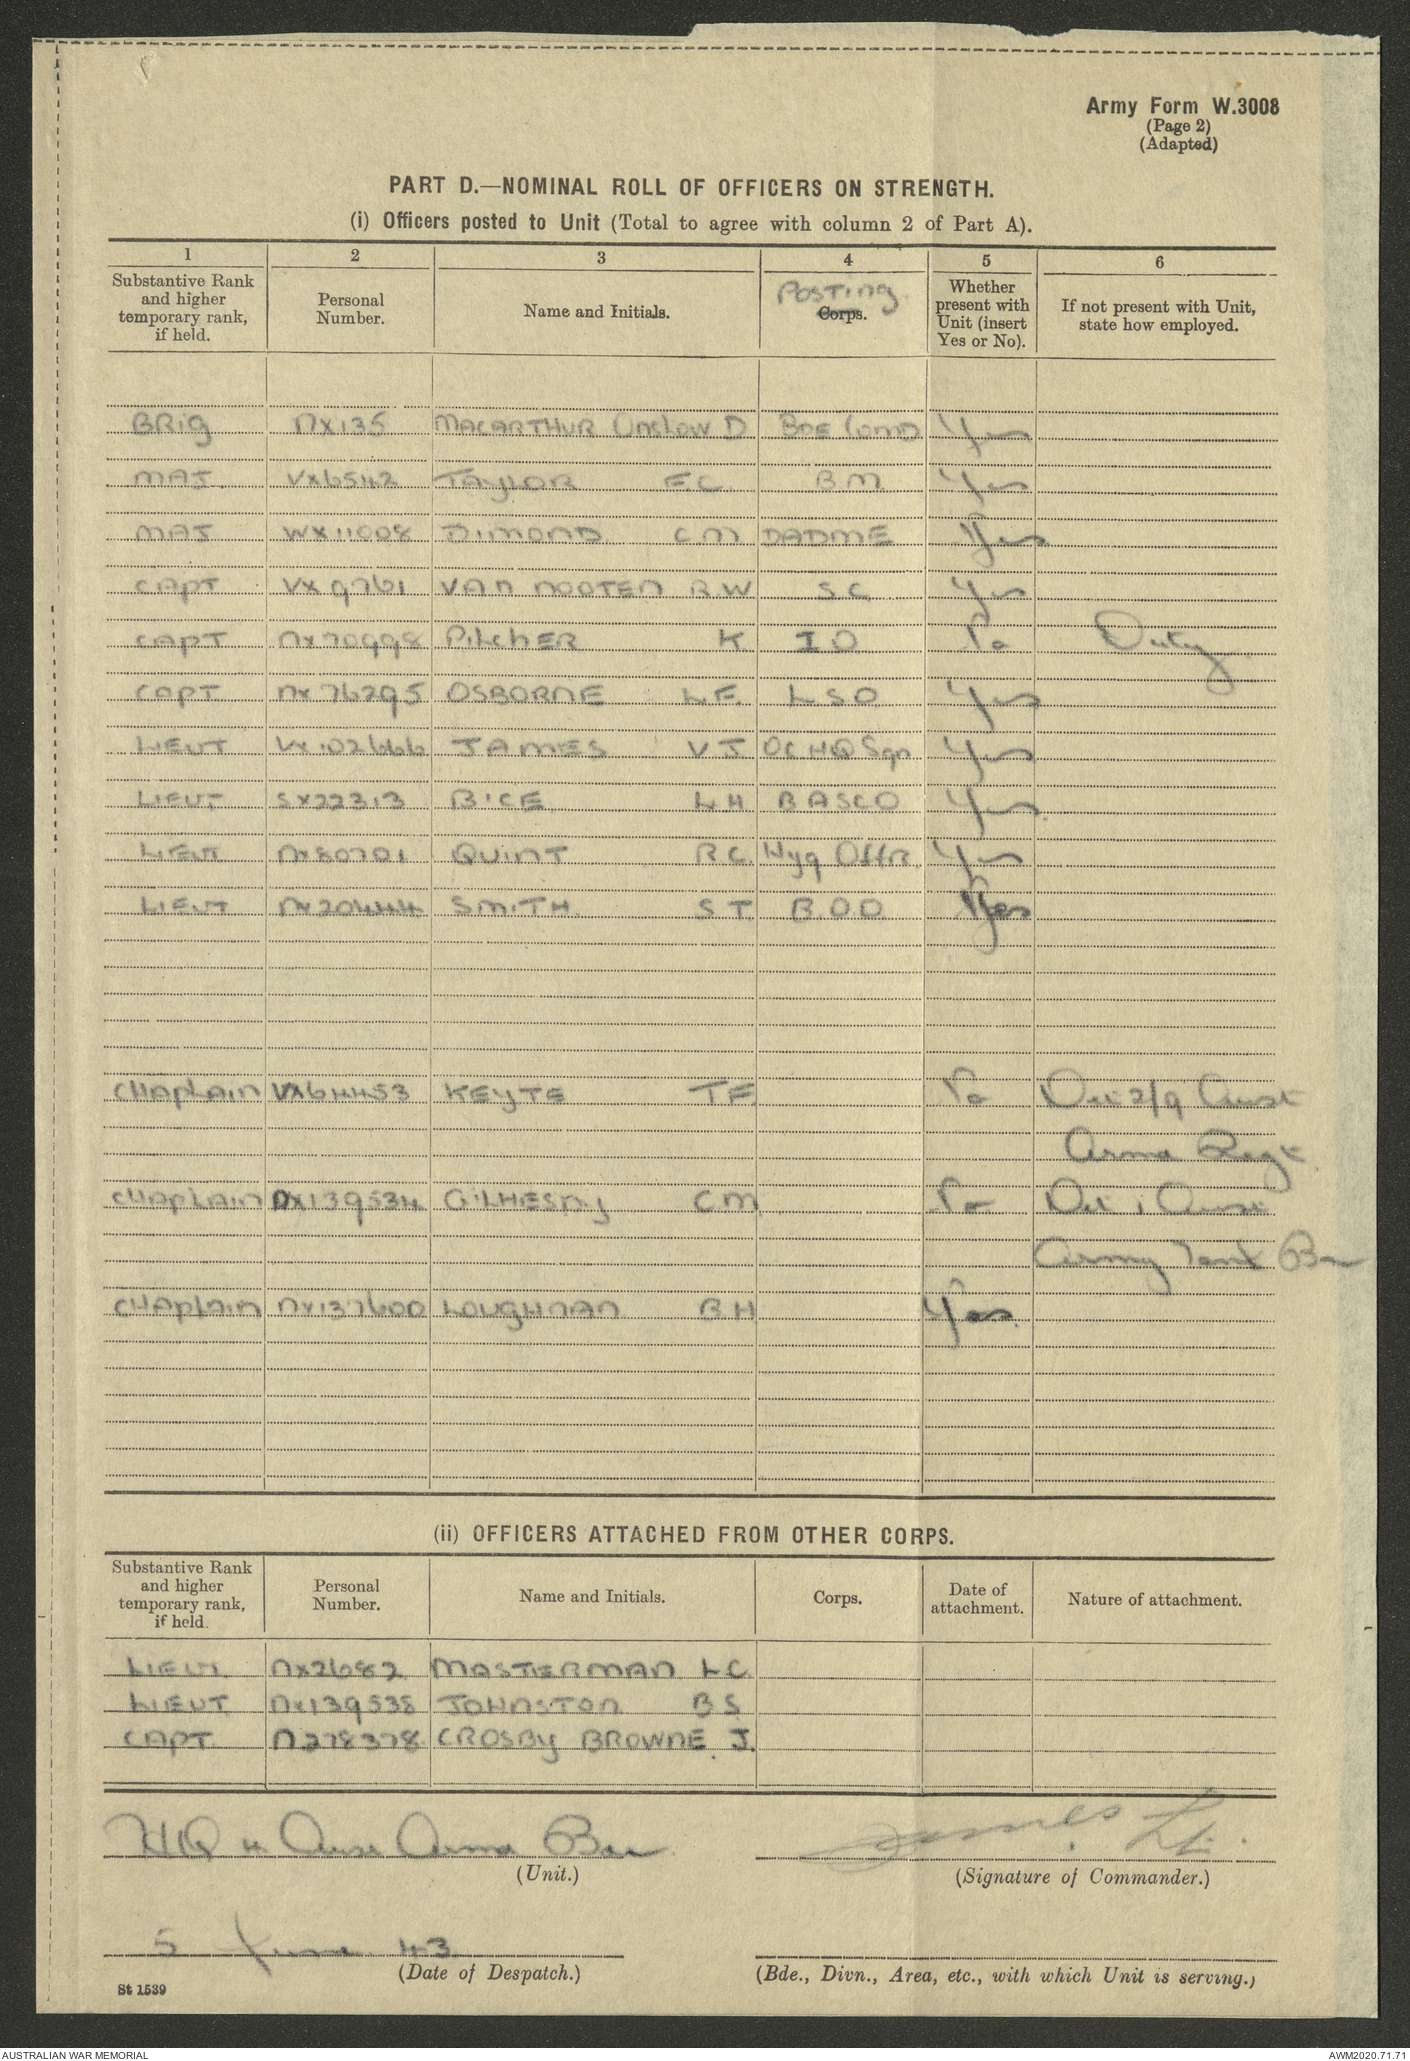 Army Form W.3008
(Page 2)
(Adapted)
PART D.—NOMINAL ROLL OF OFFICERS ON STRENGTH.
(i) Officers posted to Unit (Total to agree with column 2 of Part A).
1 2 3 4 5 6
Substantive Rank and higher temporary rank, if held. Personal Number. Name and Initials. Posting Corps. Whether present with Unit (insert Yes or No). If not present with Unit, state how employed.
BRIG NX135 MACARTHUR ONSLOW D BDE COMD Yes
MAJ. VX6542 TAYLOR F.C. B.M. Yes
MAJ WX11008 DIMOND C M DADME Yes
CAPT VX9761 VAN NOOTEN R.W S.C. Yes
CAPT NX70998 PILCHER K I O No Duty
CAPT NX76295 OSBORNE L.F. L S O Yes
LIEUT VX102666 JAMES V J OC HQ Sqn Yes
LIEUT SX22313 BICE L H BASCO Yes
LIEUT NX80701 QUINT R C. Hyg Offr. Yes
LIEUT NX20444 SMITH. S T. B.O.O. Yes
CHAPLAIN VX64453 KEYTE T F No Det 2/9 Aust
Armd Regt.
CHAPLAIN NX139534 GILHESPY C M No Det 1 Aust
Army Tank Bn
CHAPLAIN NX137600 LOUGHNAN B H Yes.
(ii) OFFICERS ATTACHED FROM OTHER CORPS.
Substantive Rank and higher temporary rank, if held. Personal Number. Name and Initials. Corps. Date of attachment. Nature of attachment.
LIEUT NX2682 MASTERMAN L C.
LIEUT NX139538 JOHNSTON B S.
CAPT N278378 CROSBY BROWNE J.
HQ 4 Aust Armd Bde
(Unit.)
James Lt.
(Signature of Commander.)
5 June 43
(Date of Despatch.)
(Bde., Divn., Area, etc., with which Unit is serving.)
St 1539
AUSTRALIAN WAR MEMORIAL
AWM2020.71.71